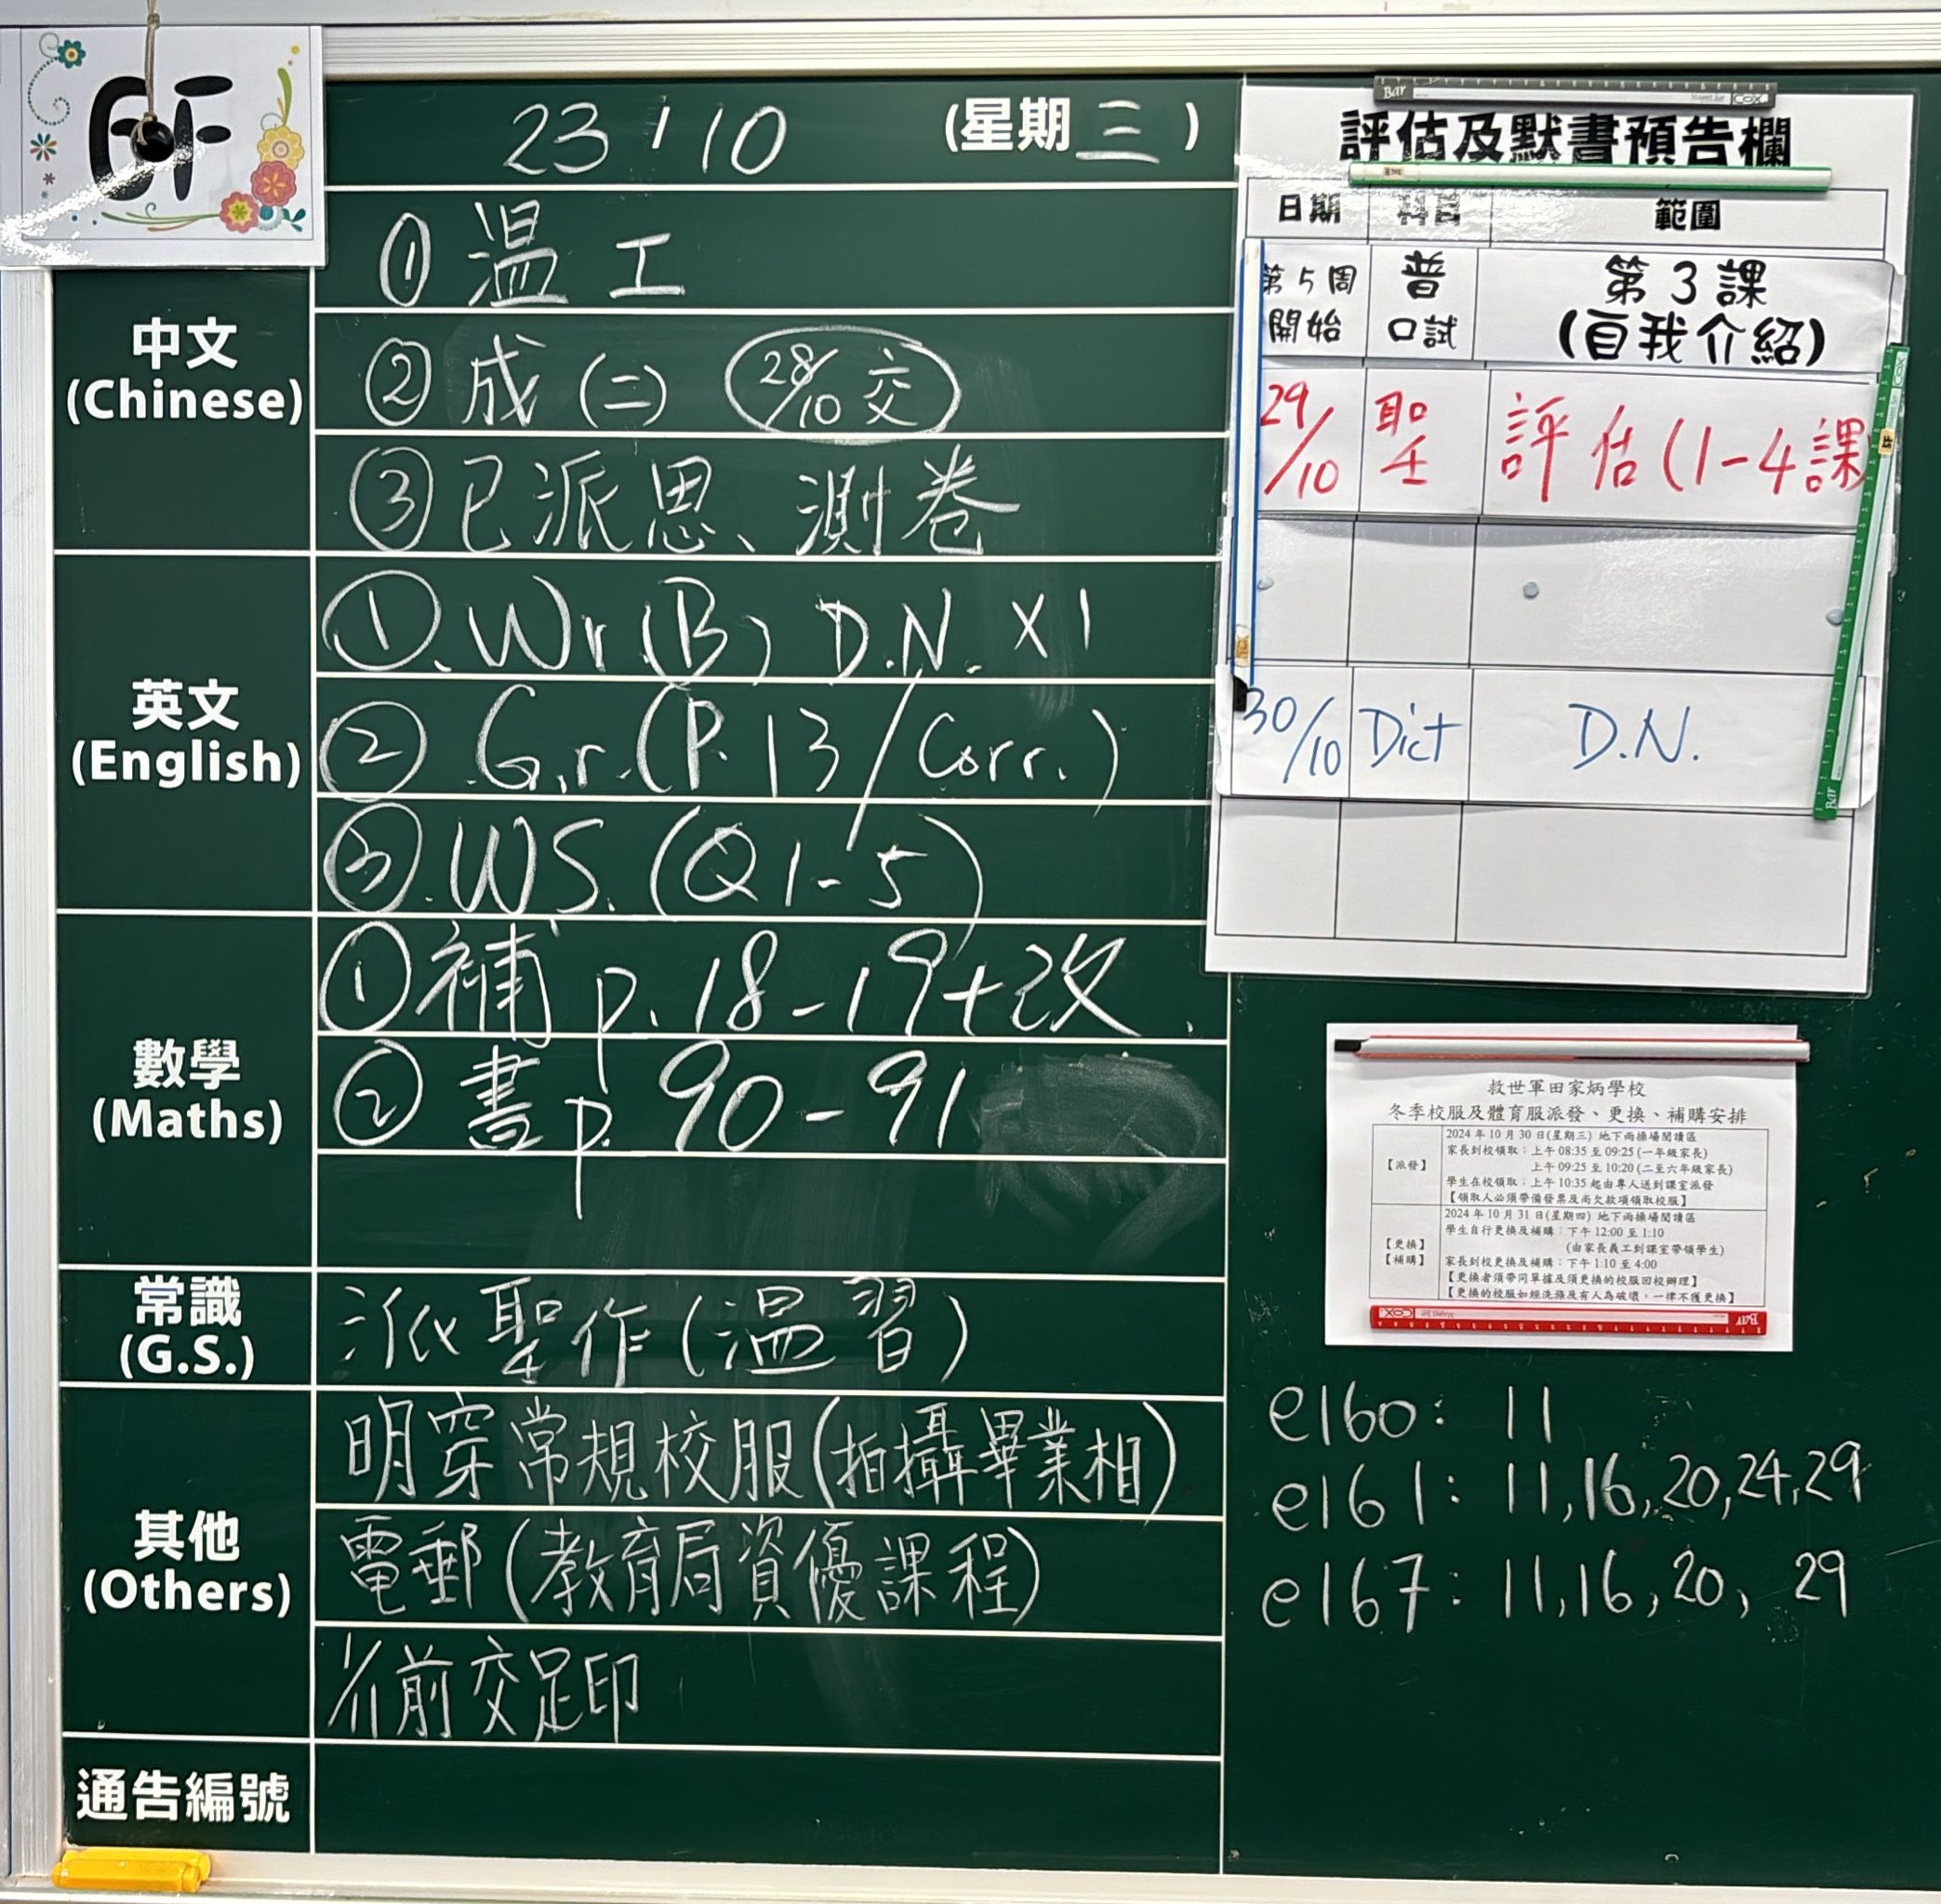 6F
23/10 (星期三)
① 溫工
中文
(Chinese)
② 成(二) 28/10交
③ 已派思、測卷
① Wr.(B) D.N. x1
英文
(English)
② Gr.(P.13/Corr.)
③ WS.(Q1-5)
① 補 p.18-19+改
數學
(Maths)
② 書 p.90-91
常識
(G.S.)
派聖作(溫習)
明穿常規校服(拍攝畢業相)
其他
(Others)
電郵(教育局資優課程)
1/11前交足印
通告編號
評估及默書預告欄
日期 科目 範圍
第5周開始 普口試 第3課(自我介紹)
29/10 聖 評估(1-4課
30/10 Dict D.N.
救世軍田家炳學校
冬季校服及體育服派發、更換、補購安排
【派發】
2024年10月30日(星期三) 地下雨操場閱讀區
家長到校領取：上午 08:35 至 09:25 (一年級家長)
上午 09:25 至 10:20 (二至六年級家長)
學生在校領取：上午 10:35 起由專人送到課室派發
【領取人必須帶備發票及尚欠款項領取校服】
【更換】
【補購】
2024年10月31日(星期四) 地下雨操場閱讀區
學生自行更換及補購：下午 12:00 至 1:10
(由家長義工到課室帶領學生)
家長到校更換及補購：下午 1:10 至 4:00
【更換者須帶同單據及須更換的校服回校辦理】
【更換的校服如經洗滌及有人為破壞，一律不獲更換】
e160: 11
e161: 11,16,20,24,29
e167: 11,16,20, 29